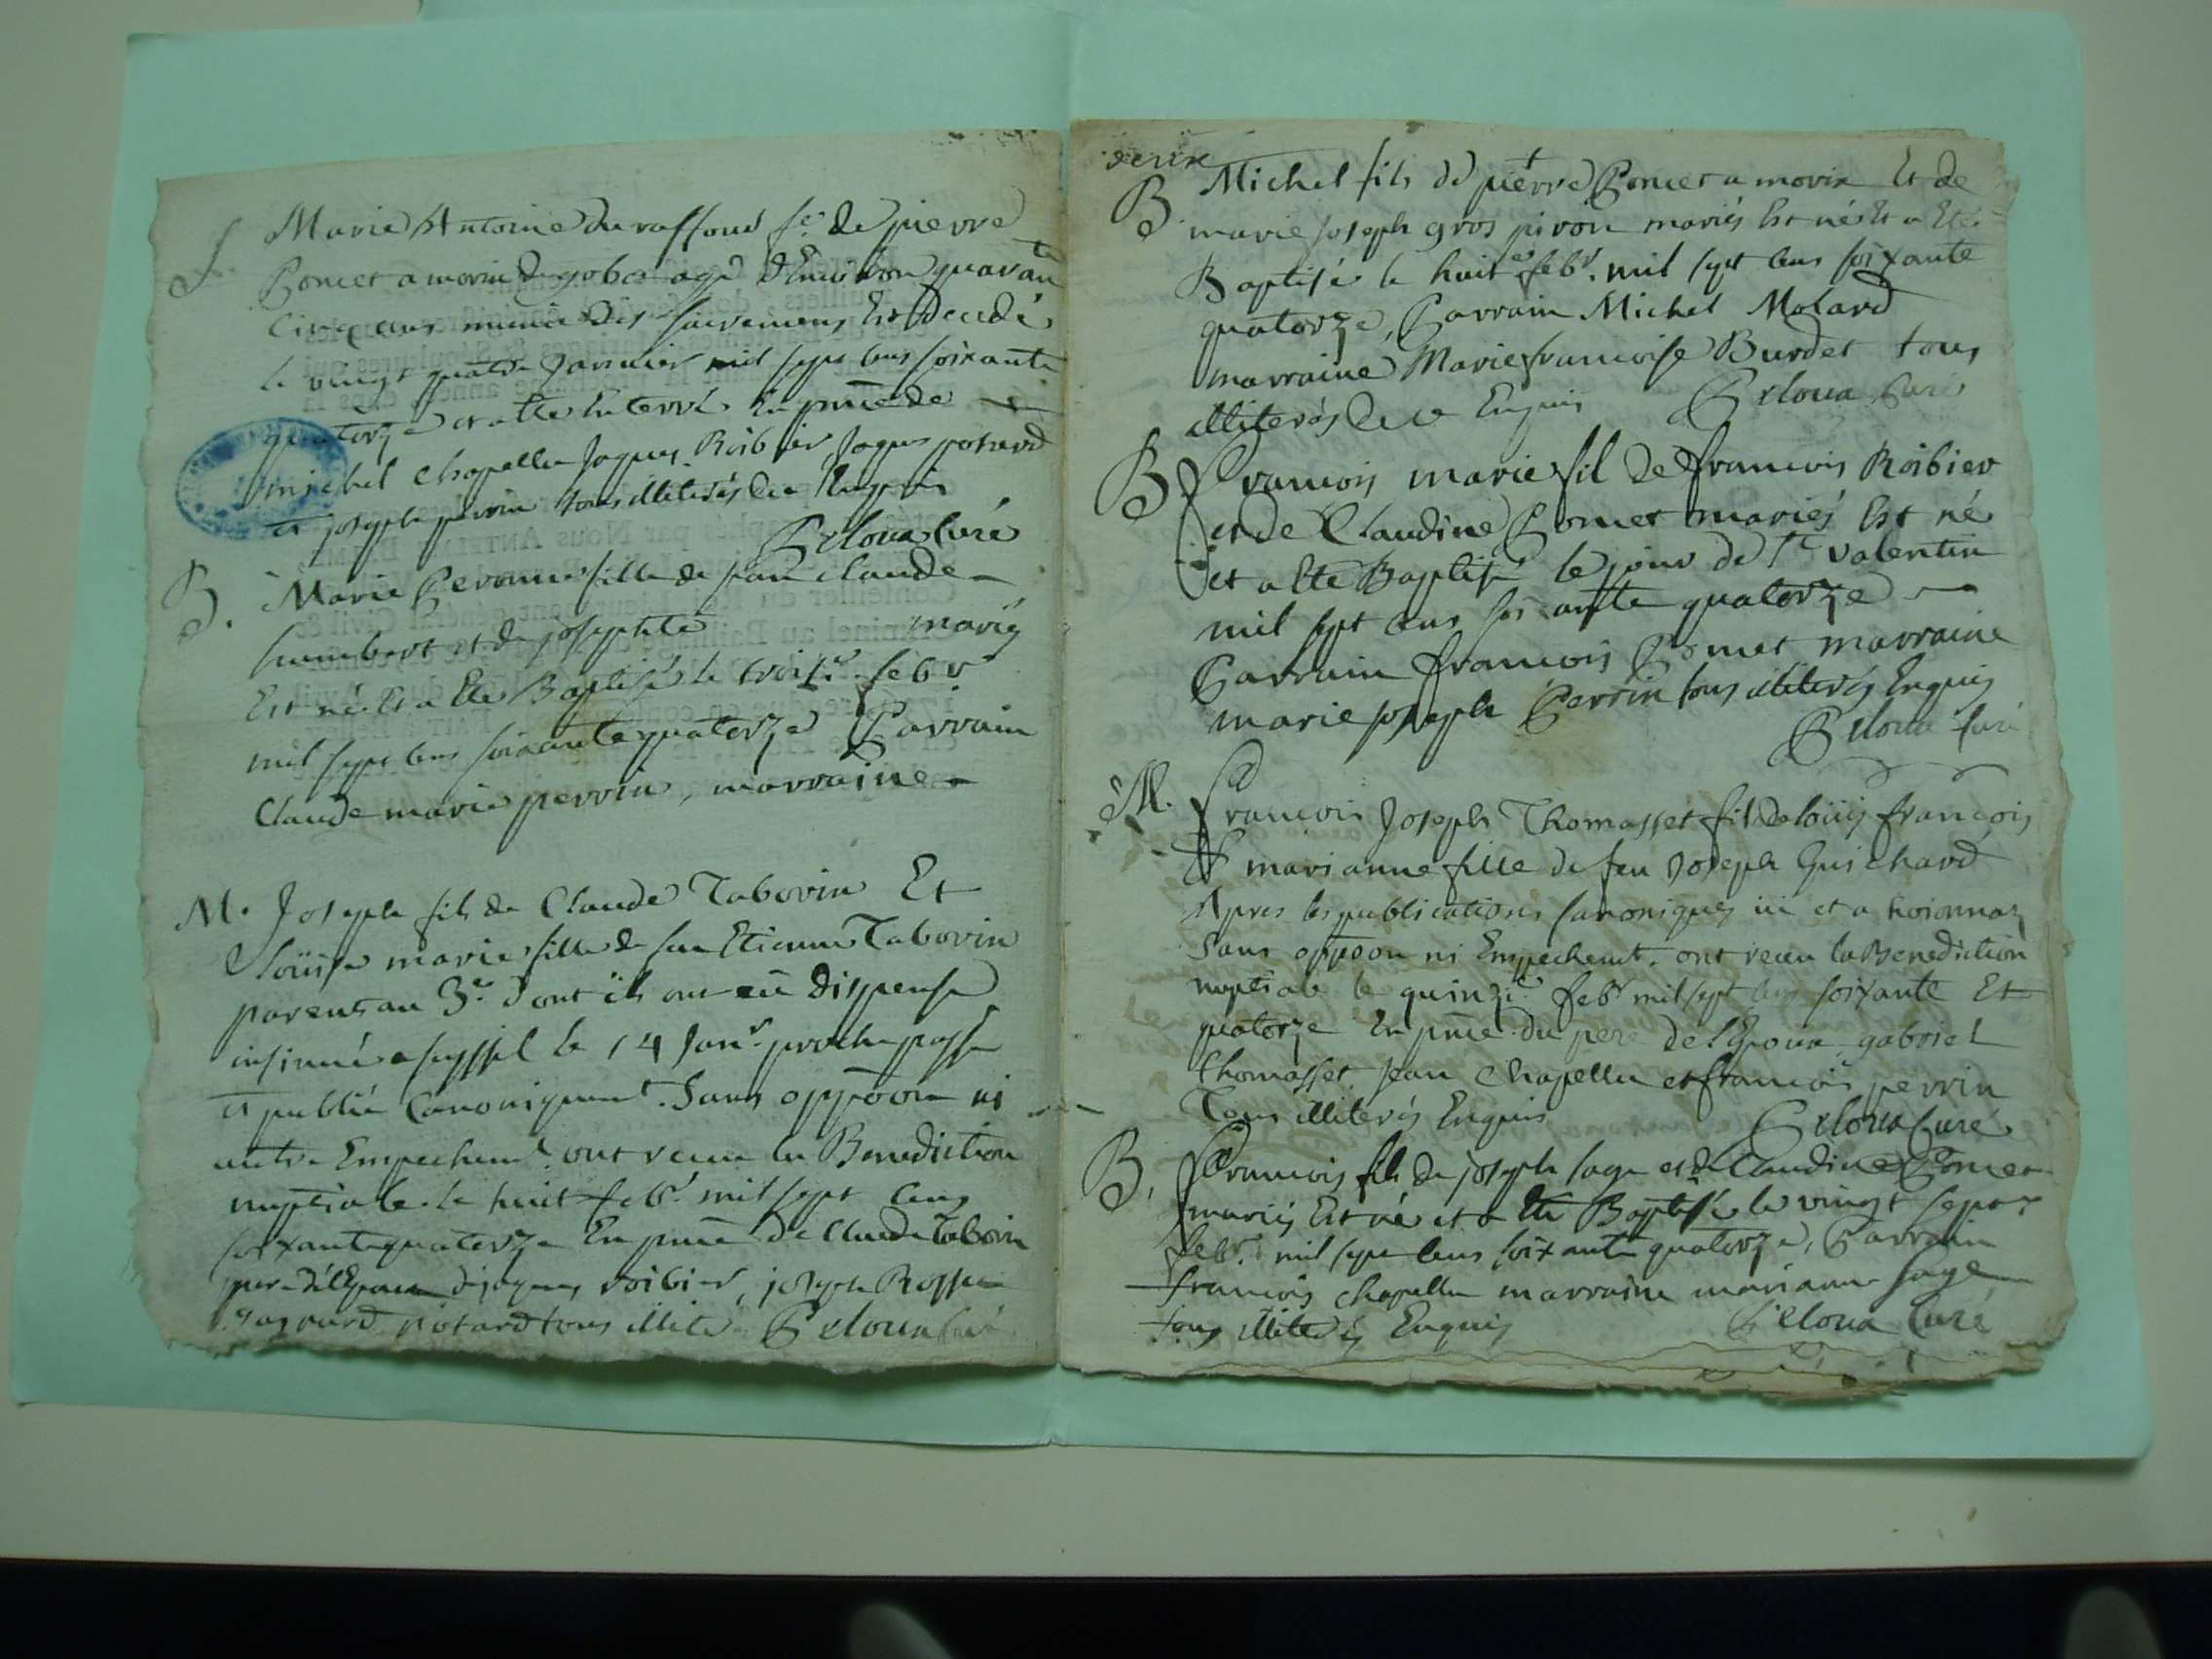 S. Marie Antoine du raffour f.e de pierre
Poncet a morin agé d'Environ quarante
Cinq ans munie des sacremens Est decedé
le vingt quatre Janvier mil sept cens soixante
quatorze et a ete Enterré En pnce de
michel chapellu Jaques Roibier Jaques potard
et joseph perrin tous illiterés de ce Enquis
Peloux Curé
B. Marie Peronne fille de jean claude
humbert et de josephte mariés
Est né Et a Ete Baptisé le trois.e febv.r
mil sept cens soixante quatorze Parrain
Claude marie perrin, marraine
M. Joseph fils de Claude Taborin Et
Loüise marie fille de feu Etienne Taborin
parens au 3.e dont ils ont eü dispense
insinué a seyssel le 14 Janv.r proche passé
et publié Canoniquemt. Sans oppoon ni
autre Empechemt. ont receu la Benediction
nuptiale le huit febv.r mil sept cens
soixante quatorze En pnce de claude Taborin
pere de l'Epoux jaques roibier, joseph Rosset
potard tous illité Peloux Curé
B. Michel fils de pierre Poncet a morin Et de
marie joseph gros piron mariés Est né Et a Eté
Baptisé le huit febv. mil sept cens soixante
quatorze, Parrain Michel Molard
marraine Marie francoise Burdet tous
illiterés de ce Enquis Peloux Curé
B Francois marie fil de francois Roibier
et de Claudine Poncet mariés Est né
et a Eté Baptisé le jour de St valentin
mil sept cens soixante quatorze
Parrain francois Poncet marraine
marie joseph Perrin tous illiterés Enquis
Peloux Curé
M. Francois Joseph Thomasset fil de loüis francois
Et marianne fille de feu Joseph Guichard
Apres les publications Canoniques ici et a hoionnaz
Sans oppoon ni Empechemt. ont receu la Benediction
nuptiale le quinzie febv.r mil sept cens soixante Et
quatorze En pnce du pere de l'Epoux gabriel
thomasset. Jean Chapellu et francois perrin
Tous illiterés Enquis Peloux Curé
B, Francois fils de joseph sage et de Claudine Poncet
mariés Est né et a Eté Baptisé le vingt sept
febv.r mil sept cens soixante quatorze, Parrain
francois chapellu marraine marianne sage
tous illiterés Enquis Peloux Curé